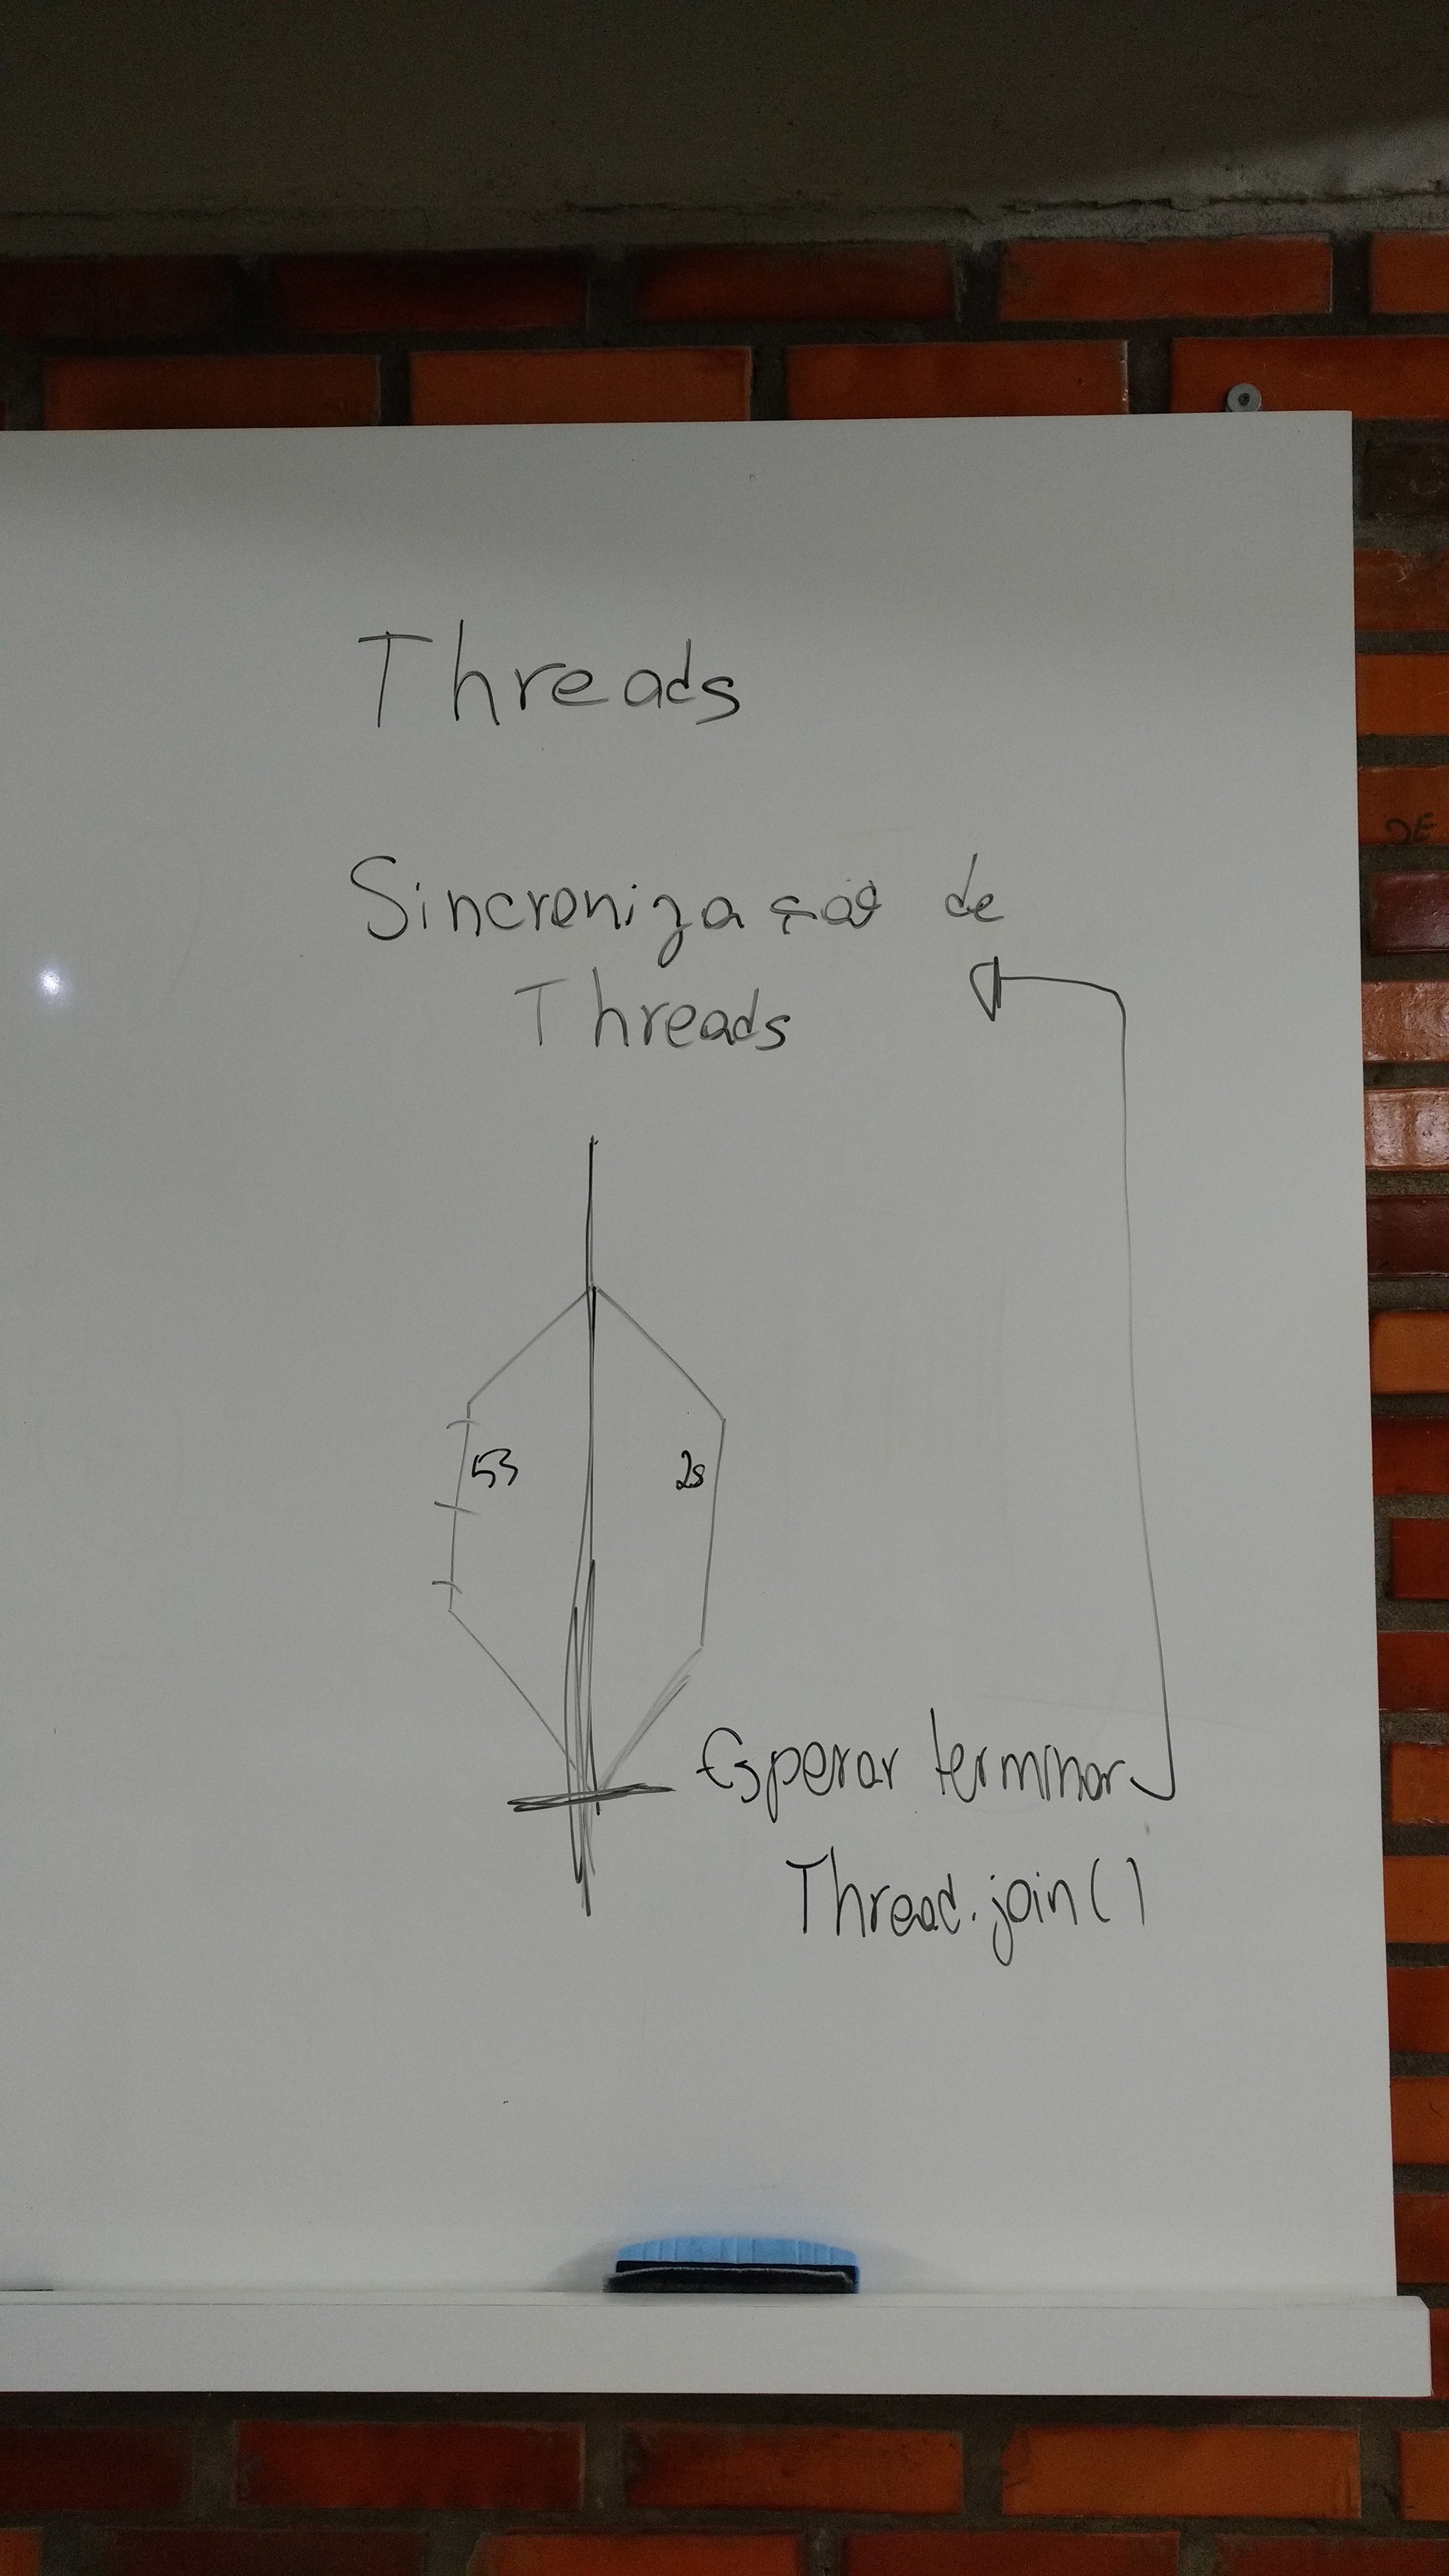 Threads
Sincronização de
Threads
5s
2s
Esperar terminar
Thread.join()